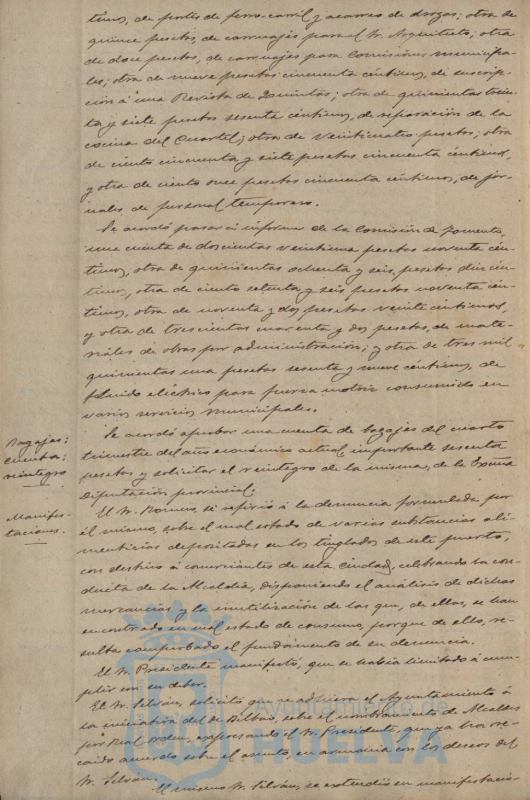 timos, de portes de ferro-carril y acarreo de drogas; otra de
quince pesetas, de carruajes para el Sr. Arquitecto; otra
de doce pesetas, de carruajes para Comisiones municipa-
les; otra de nueve pesetas cincuenta céntimos, de suscrip-
ción á una Revista de Quintas; otra de quinientas trein-
ta y siete pesetas sesenta céntimos, de reparación de la
cocina del Cuartel; otra de veinticuatro pesetas; otra
de ciento cincuenta y siete pesetas cincuenta céntimos,
y otra de ciento once pesetas cincuenta céntimos, de jor-
nales de personal temporero.
Se acordó pasar á informe de la Comisión de Fomento,
una cuenta de doscientas veintiuna pesetas noventa cén-
timos, otra de quinientas ochenta y seis pesetas diez cén-
timos, otra de ciento setenta y seis pesetas noventa cén-
timos, otra de noventa y dos pesetas veinte céntimos,
y otra de trescientas cuarenta y dos pesetas, de mate-
riales de obras por administración; y otra de tres mil
quinientas una pesetas sesenta y nueve céntimos, de
fluido eléctrico para fuerza motriz consumido en
varios servicios municipales.
Bagajes;
cuenta;
reintegro
Se acordó aprobar una cuenta de bagajes del cuarto
trimestre del año económico actual, importante sesenta
pesetas y solicitar el reintegro de la misma, de la Excma
Diputación provincial.
Manifes-
taciones.
El Sr. Romero, se refirió á la denuncia formulada por
él mismo, sobre el mal estado de varias substancias ali-
menticias depositadas en los tinglados de este puerto,
con destino á comerciantes de esta Ciudad, celebrando la con-
ducta de la Alcaldía, disponiendo el análisis de dichas
mercancías y la inutilización de las que, de ellas, se han
encontrado en mal estado de consumo, porque de ello, re-
sulta comprobado el fundamento de su denuncia.
El Sr. Presidente manifestó, que se había limitado á cum-
plir con su deber.
El Sr. Silván, solicitó que se adhiera el Ayuntamiento á
la iniciativa del de Bilbao, sobre el nombramiento de Alcaldes
por Real orden, expresando el Sr. Presidente, que ya ha re-
caído acuerdo sobre el asunto, en armonía con los deseos del
Sr. Silván.
El mismo Sr. Silván, se extendió en manifestacio-
Ayuntamiento de
HUELVA